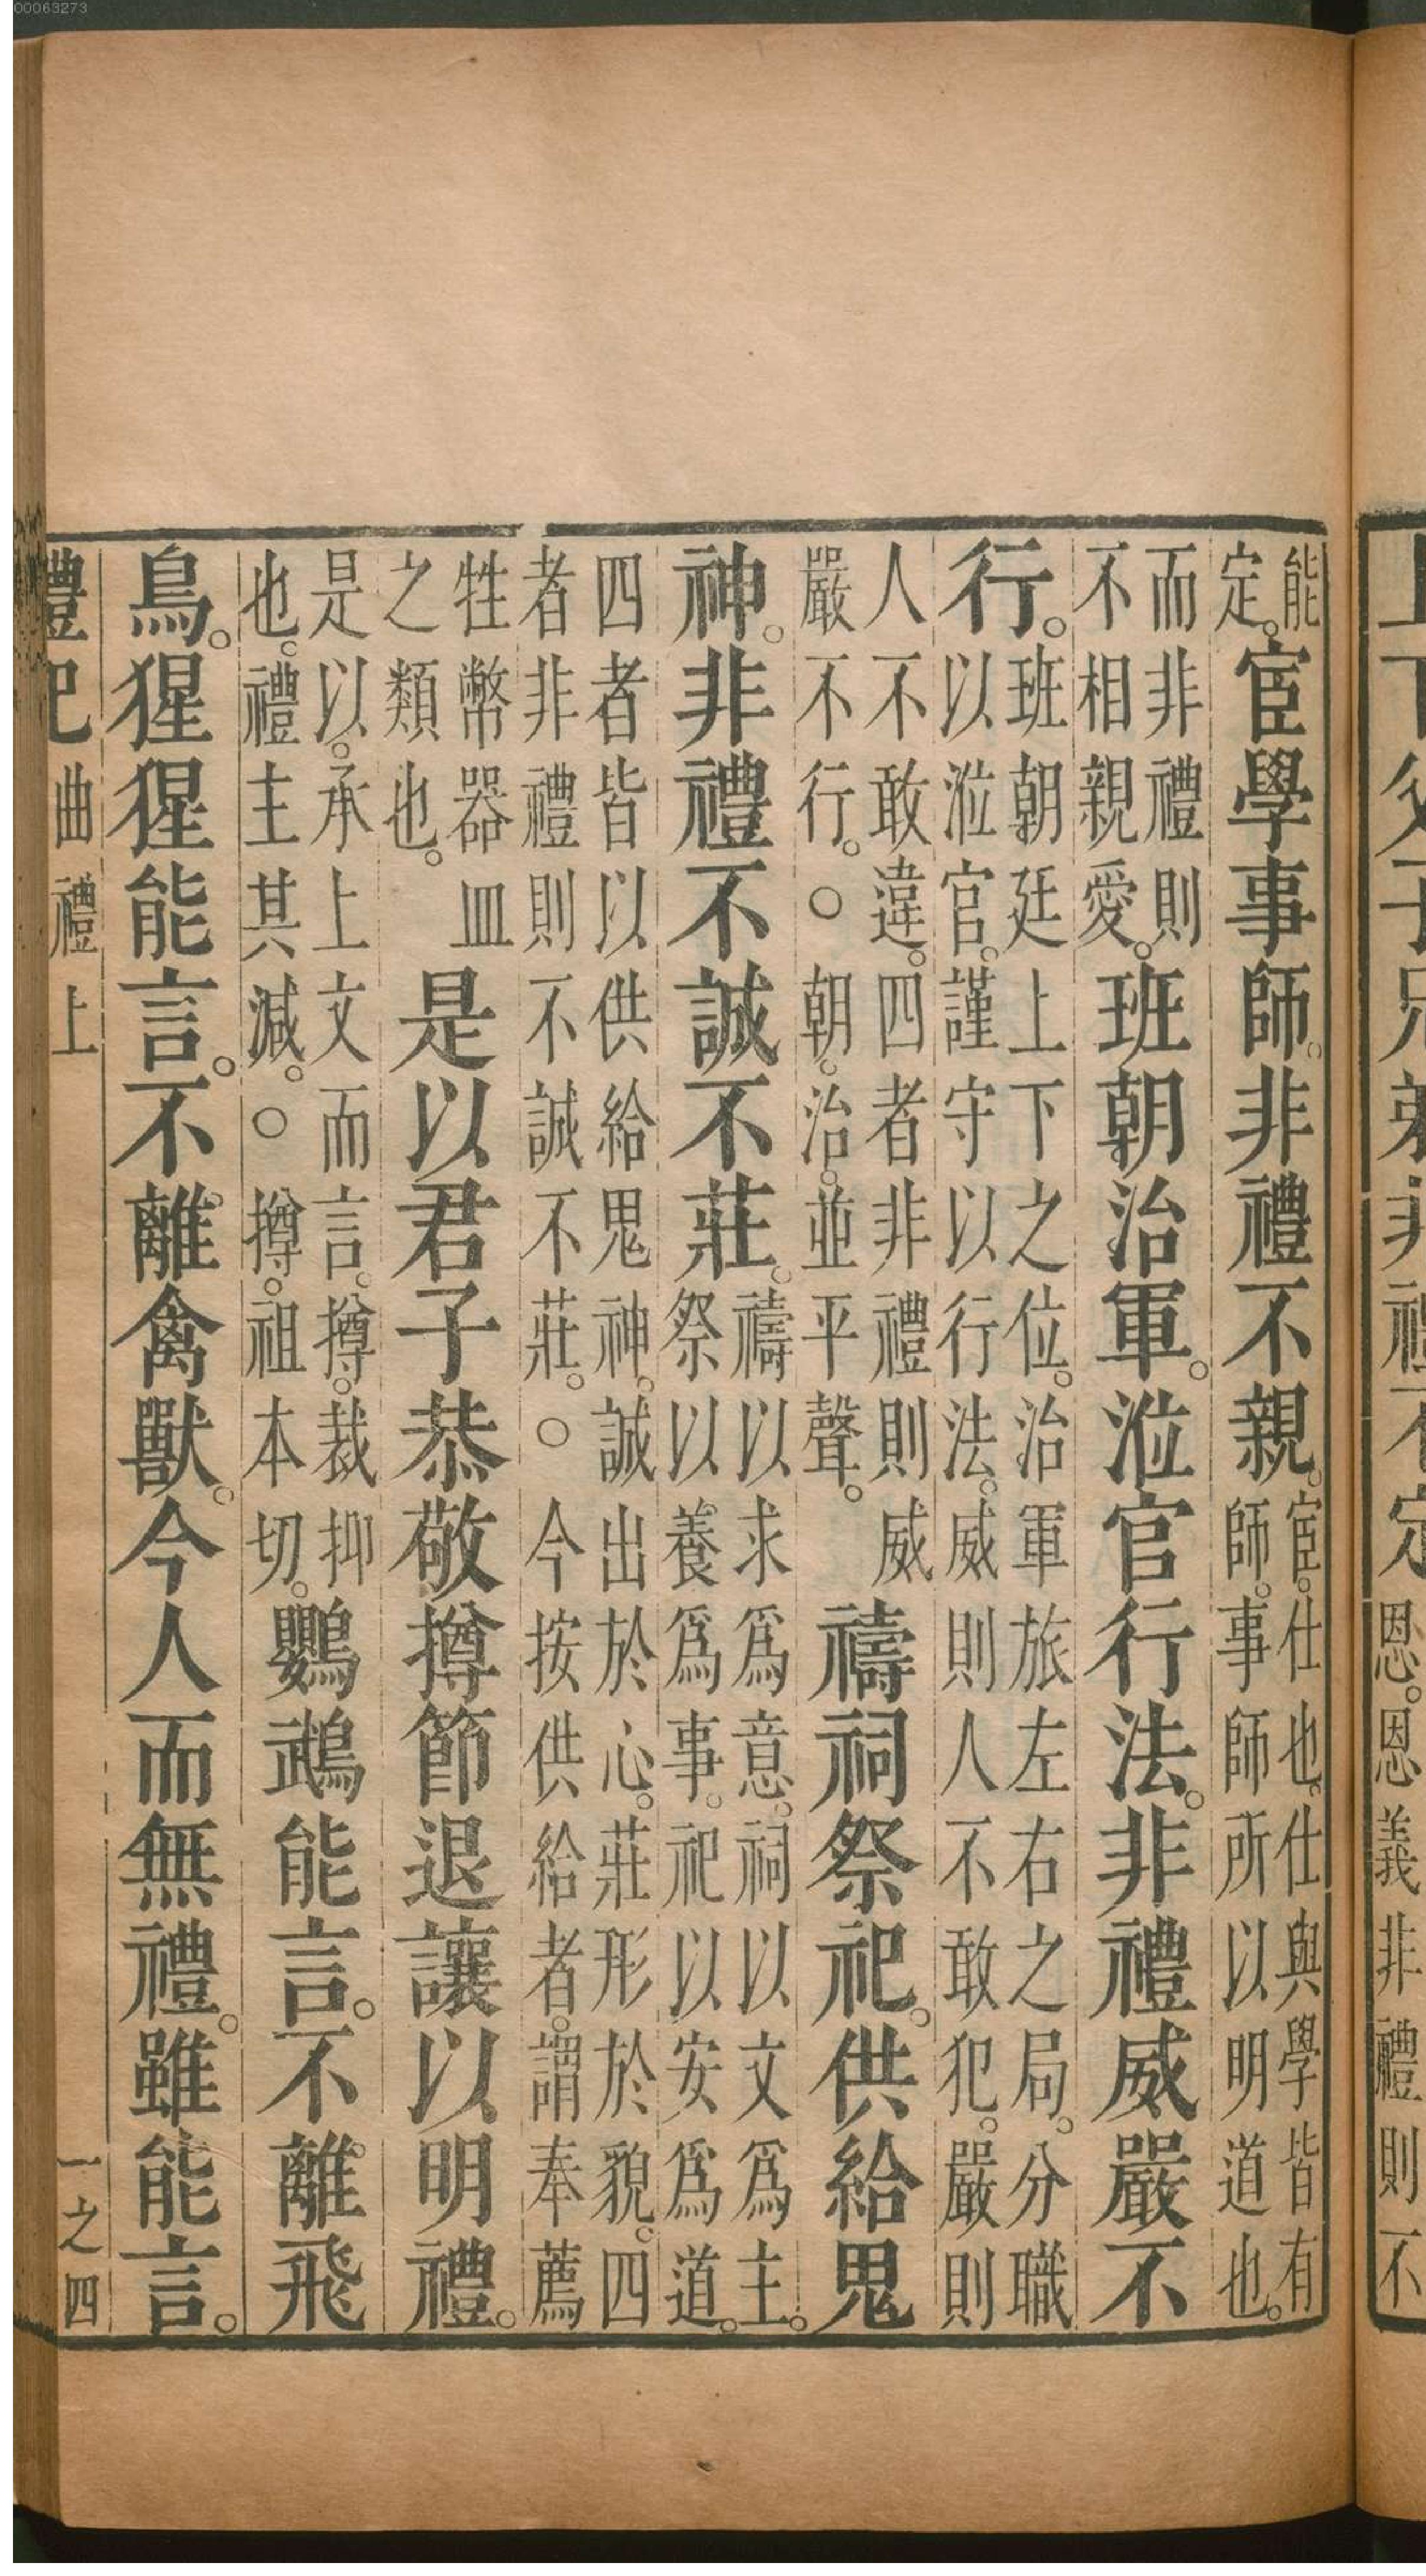 00063273
上下父子兄弟非禮不定恩。恩義非禮則不
能定。宦學事師。非禮不親。宦。仕也。仕與學皆有師。事師所以明道也。
而非禮則不相親愛。班朝治軍。涖官行法。非禮威嚴不
行。班朝廷上下之位。治軍旅左右之局。分職以涖官。謹守以行法。威則人不敢犯。嚴則
人不敢違。四者非禮則威嚴不行。○朝。治。並平聲。禱祠祭祀。供給鬼
神。非禮不誠不莊。禱以求爲意。祠以文爲主。祭以養爲事。祀以安爲道。
四者皆以供給鬼神。誠出於心。莊形於貌。四者非禮則不誠不莊。○今按供給者。謂奉薦
牲幣器皿之類也。是以君子恭敬撙節退讓以明禮。
是以。承上文而言。撙。裁抑也。禮主其減。○撙。祖本切。鸚鵡能言。不離飛
鳥。猩猩能言。不離禽獸。今人而無禮。雖能言。
禮記 曲禮上 一之四